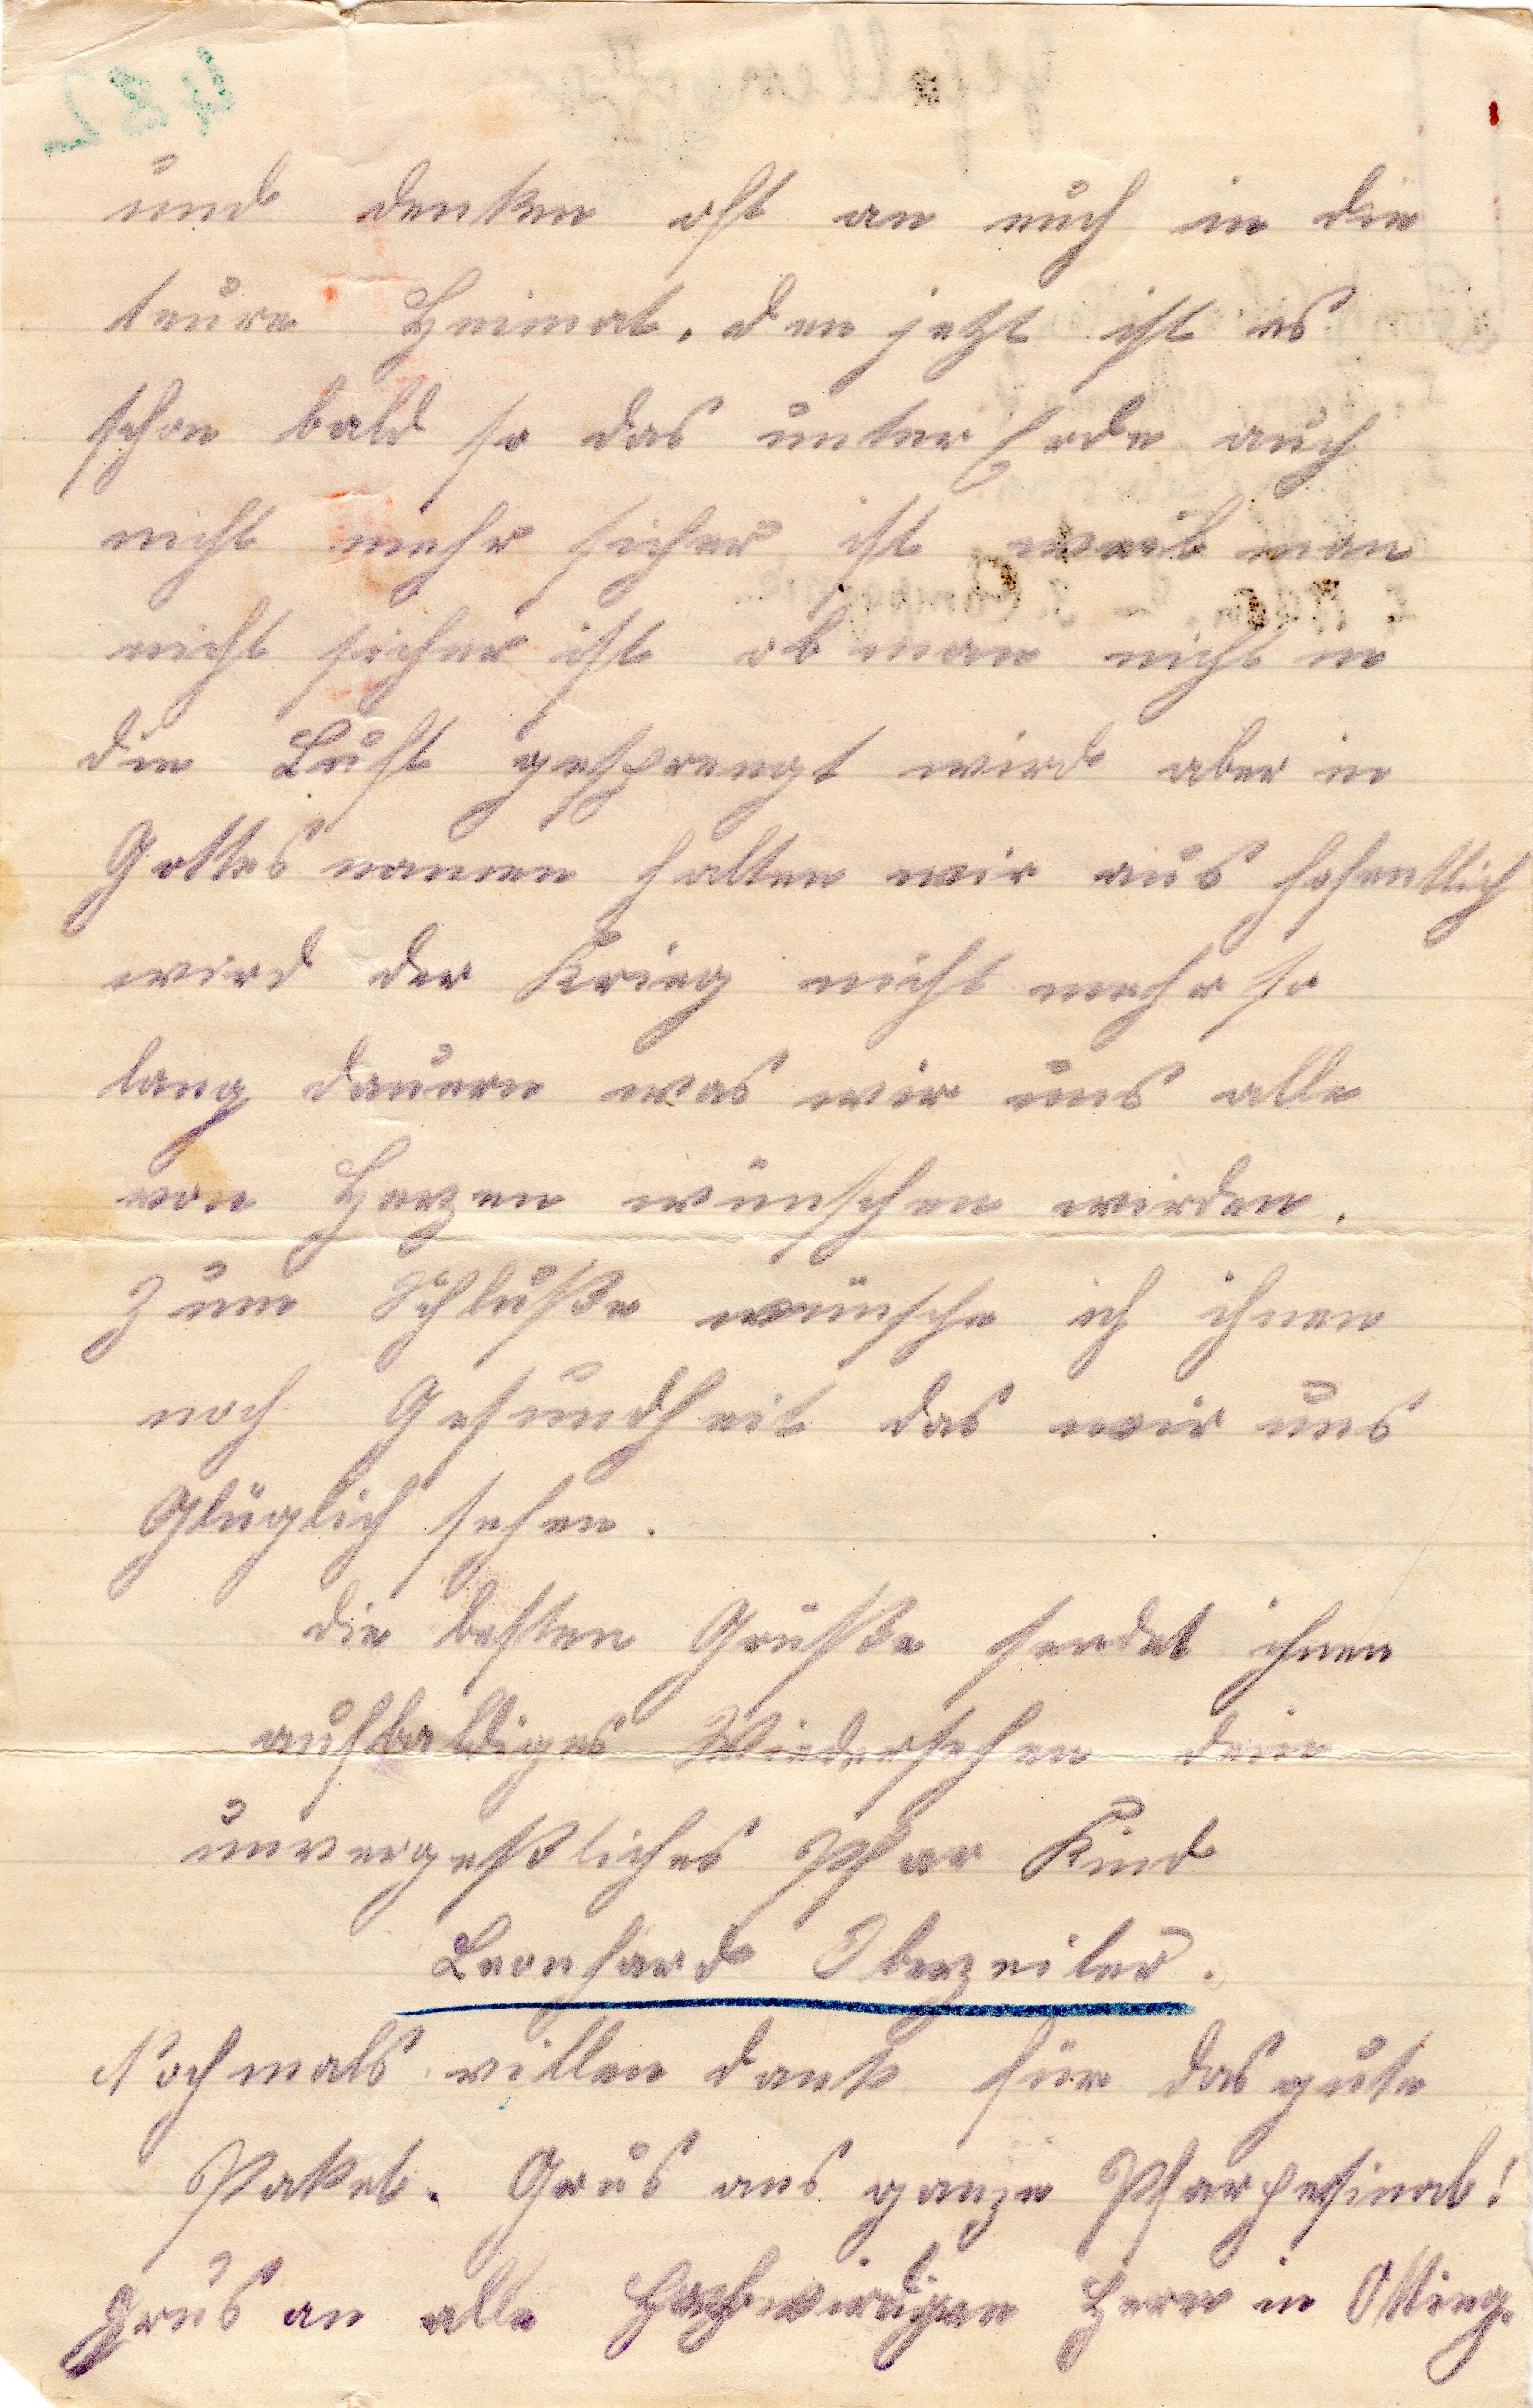 und denken oft an euch in die
teure Heimat. den jetzt ist es
schon bald so das unter Erde auch
nicht mehr sicher ist weil man
nicht sicher ist ob man nicht in
die Luft gesprengt wird aber in
Gottes namen halten wir aus hofentlich
wird der Krieg nicht mehr so
lang dauern was wir uns alle
von Herzen wünschen wirden.
Zum Schluße wünsche ich ihnen
noch Gesundheit das wir uns
Glüglich sehen.
die besten Grüße sendet ihnen
auf baldiges Wiedersehen dein
unvergeßliches Pfar Kind
Leonhard Oberzeiler.
Nochmals villen dank für das gute
Paket. Grus ans ganze
Grus an alle Hochwirdigen Herrn in Otting.